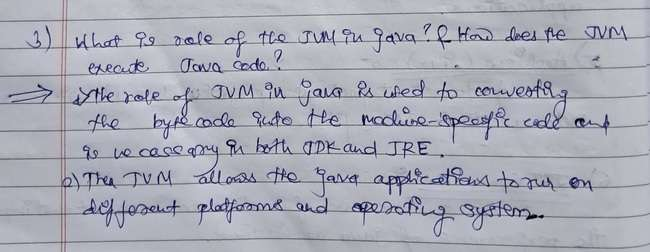 3) What is role of the JVM in java? & How does the JVM
execute Java code?
⇒ 1) The role of JVM in java is used to converting
the byte code into the machine-specific code and
is necessary in both JDK and JRE.
2) The JVM allows the java applications to run on
different platforms and operating system.